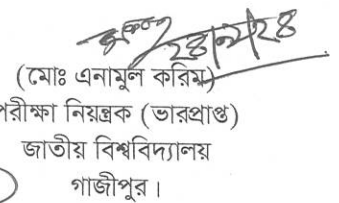 ২৪/৭/২৪
(মোঃ এনামুল করিম)
পরীক্ষা নিয়ন্ত্রক (ভারপ্রাপ্ত)
জাতীয় বিশ্ববিদ্যালয়
গাজীপুর।